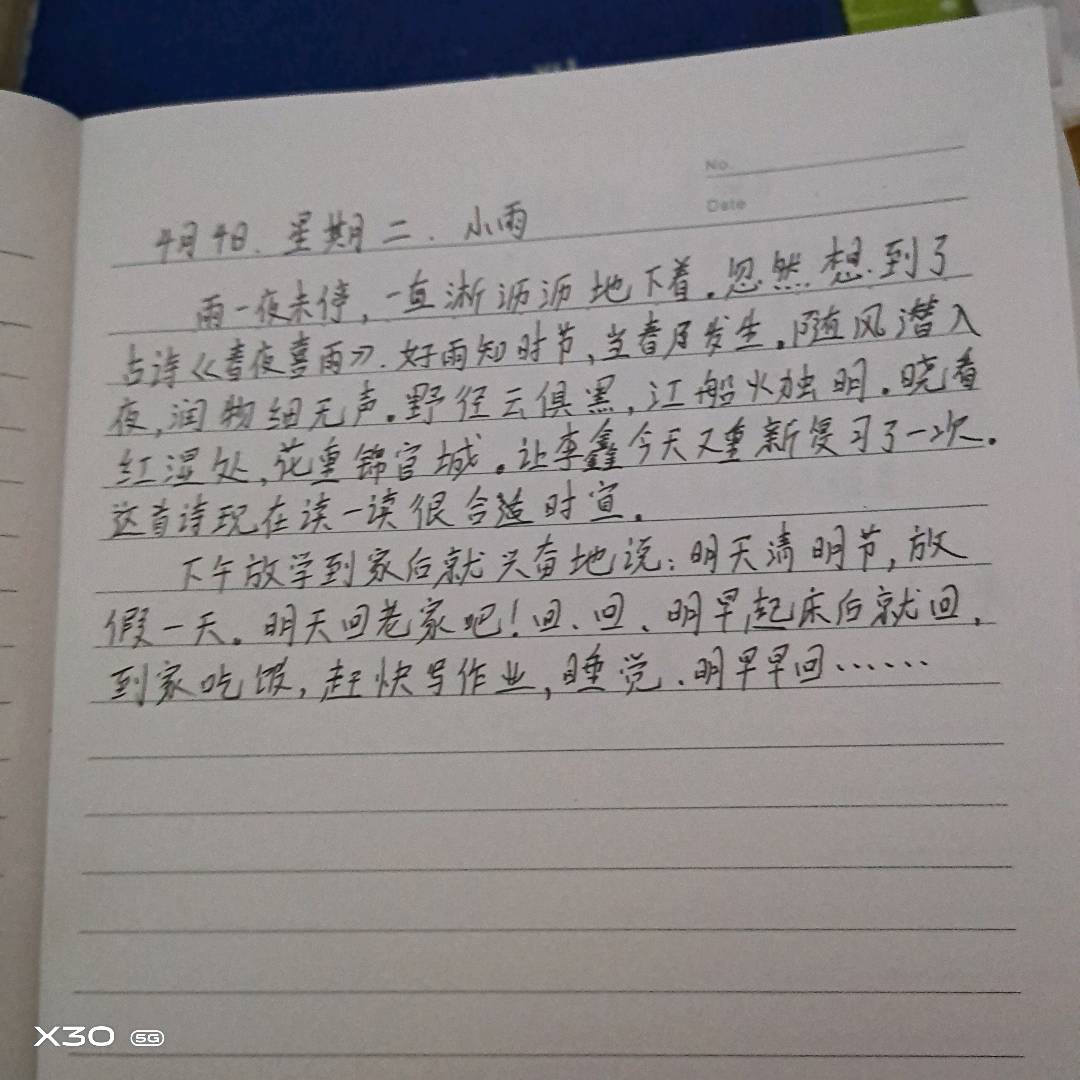 No.
Date
4月4日.星期二.小雨
雨一夜未停,一直淅沥沥地下着.忽然想到了
古诗《春夜喜雨》.好雨知时节,当春乃发生.随风潜入
夜,润物细无声.野径云俱黑,江船火独明.晓看
红湿处,花重锦官城.让李鑫今天又重新复习了一次.
这首诗现在读一读很合适时宜.
下午放学到家后就兴奋地说:明天清明节,放
假一天。明天回老家吧!回、回、明早起床后就回.
到家吃饭,赶快写作业,睡觉.明早早回……
X30 5G